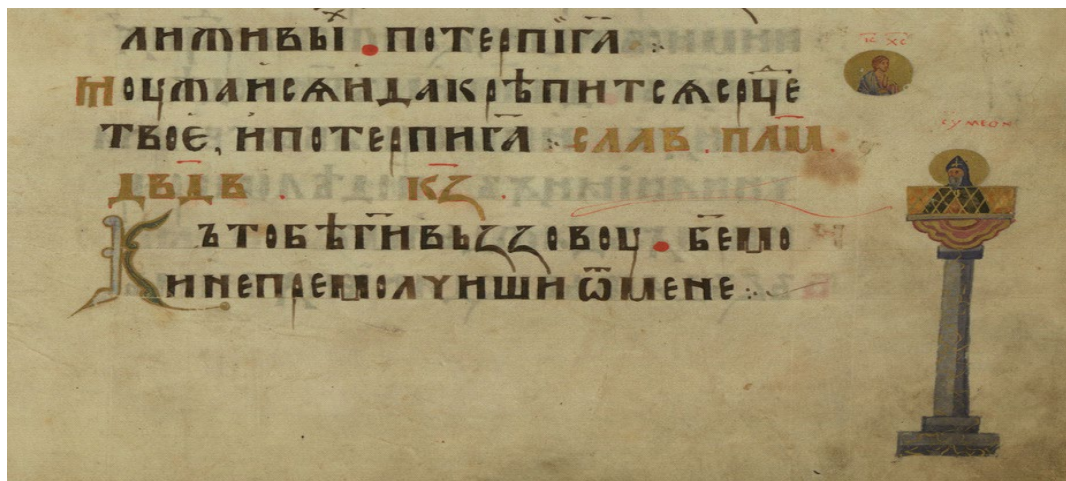 лимживыı . потерпігⷭ҇а
моужайсѧ и да крѣпитсѧ срц҃е
твоє, и потерпи га҃ слав . пл҃м .
дв҃дв . к҃з .
Къ тобѣ ги҃ възъзовоу . бе҃ мо
и не премолчиши ѿ мене
іс҃ хс҃
сумеон